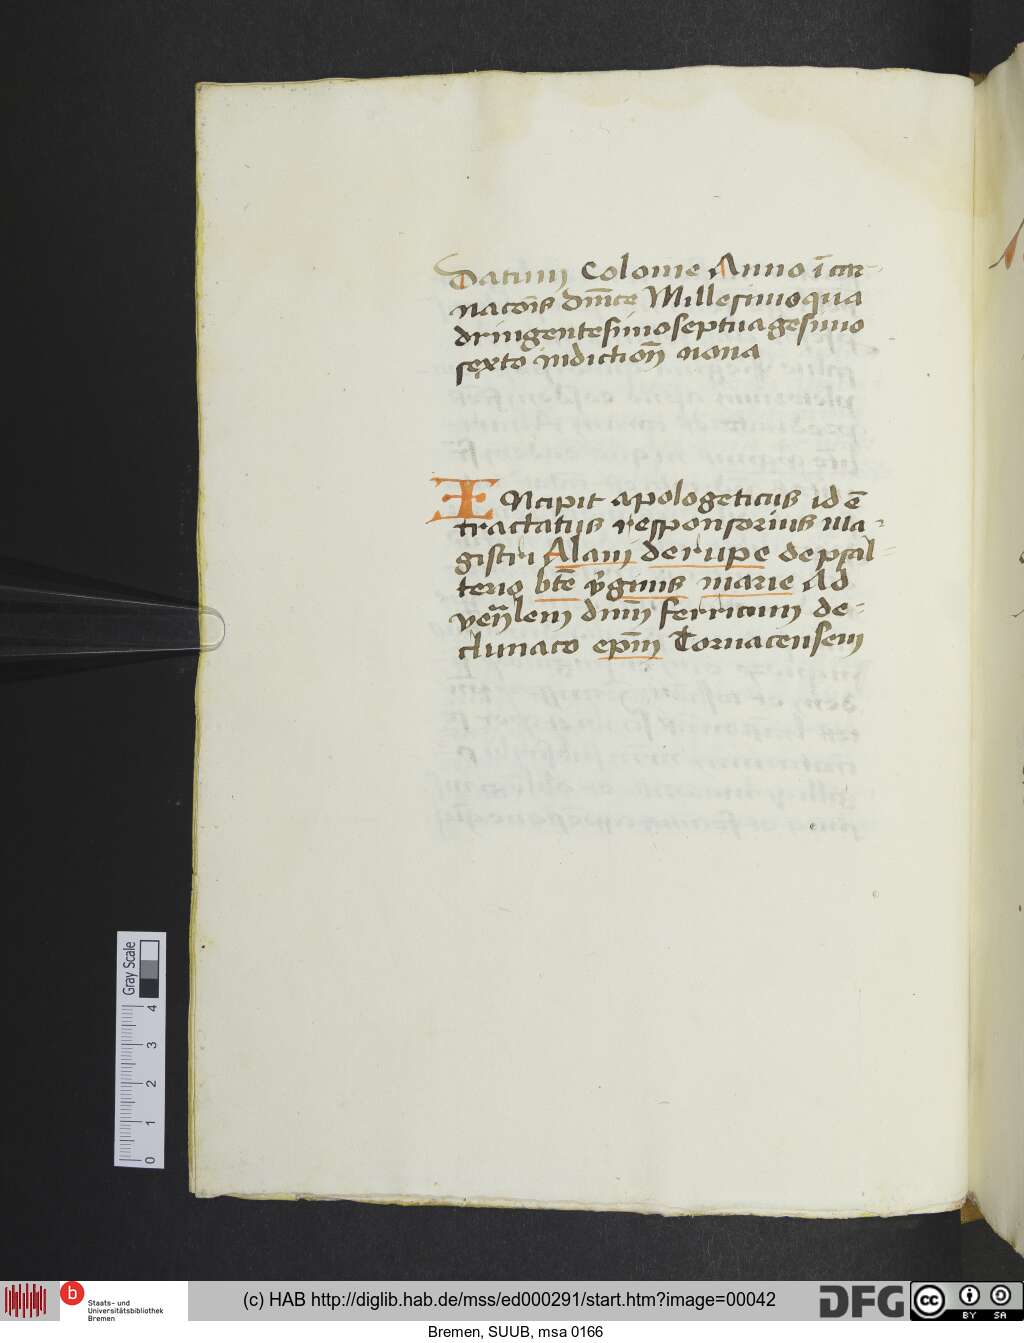 Datum Colonie Anno īcar-
nacōīs dnīce Millesimoqua
dringentesimoseptuagesimo
sexto indictiōn nona
INcipit apologeticus id ē
tractatus responsorius ma-
gistri Alani derupe depsal-
terio btē v̄ginis marie Ad
ven̄lem dnm̄ ferricum de-
clunaco epm̄ Tornacensem
Gray Scale
4
3
2
1
0
b
Staats- und
Universitätsbibliothek
Bremen
(c) HAB http://diglib.hab.de/mss/ed000291/start.htm?image=00042
DFG
cc
BY SA
Bremen, SUUB, msa 0166